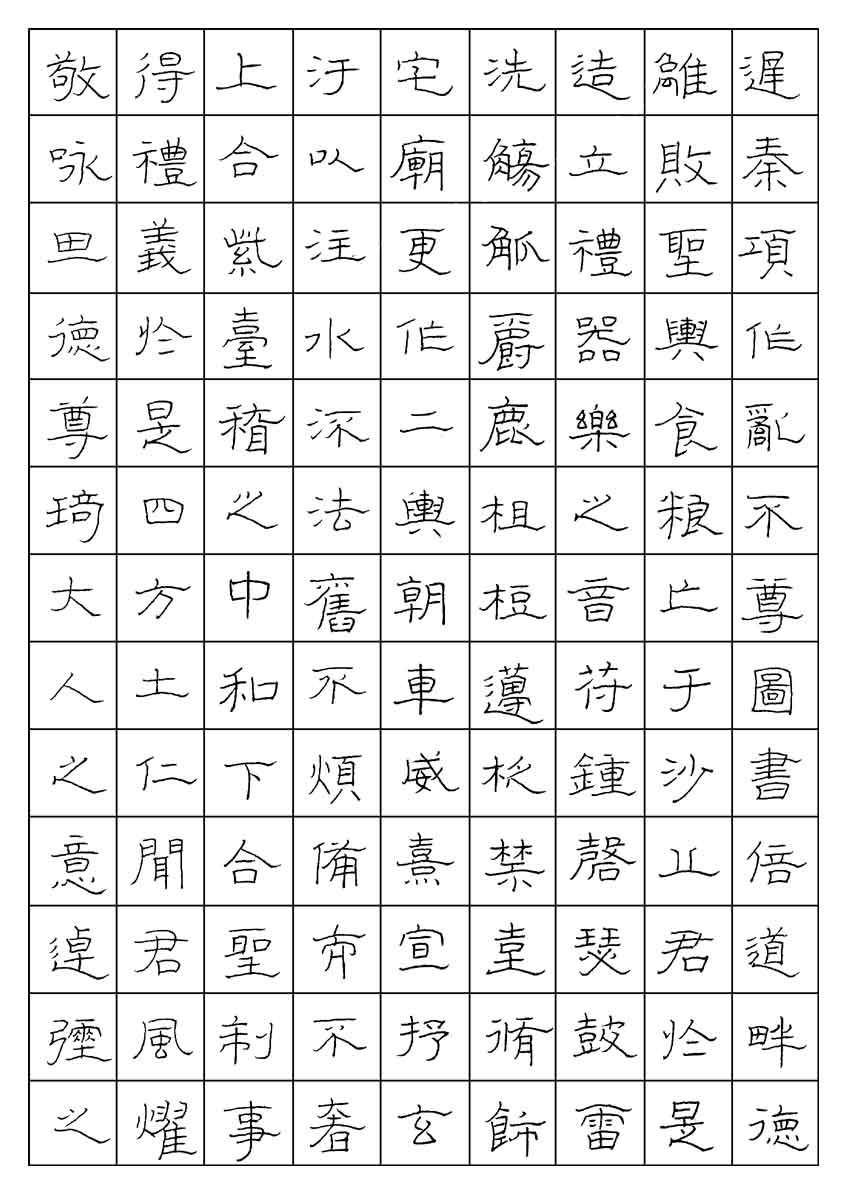 遲秦項作亂不尊圖書倍道畔德
離敗聖輿食粮亡于沙丘君於是
造立禮器樂之音符鍾磬瑟鼓雷
洗觴觚爵鹿柤梪籩柉禁壺脩飾
宅廟更作二輿朝車威熹宣抒玄
汙以注水流法舊不煩備而不奢
上合紫臺稽之中和下合聖制事
得禮義於是四方土仁聞君風燿
敬咏其德尊琦大人之意逴彌之